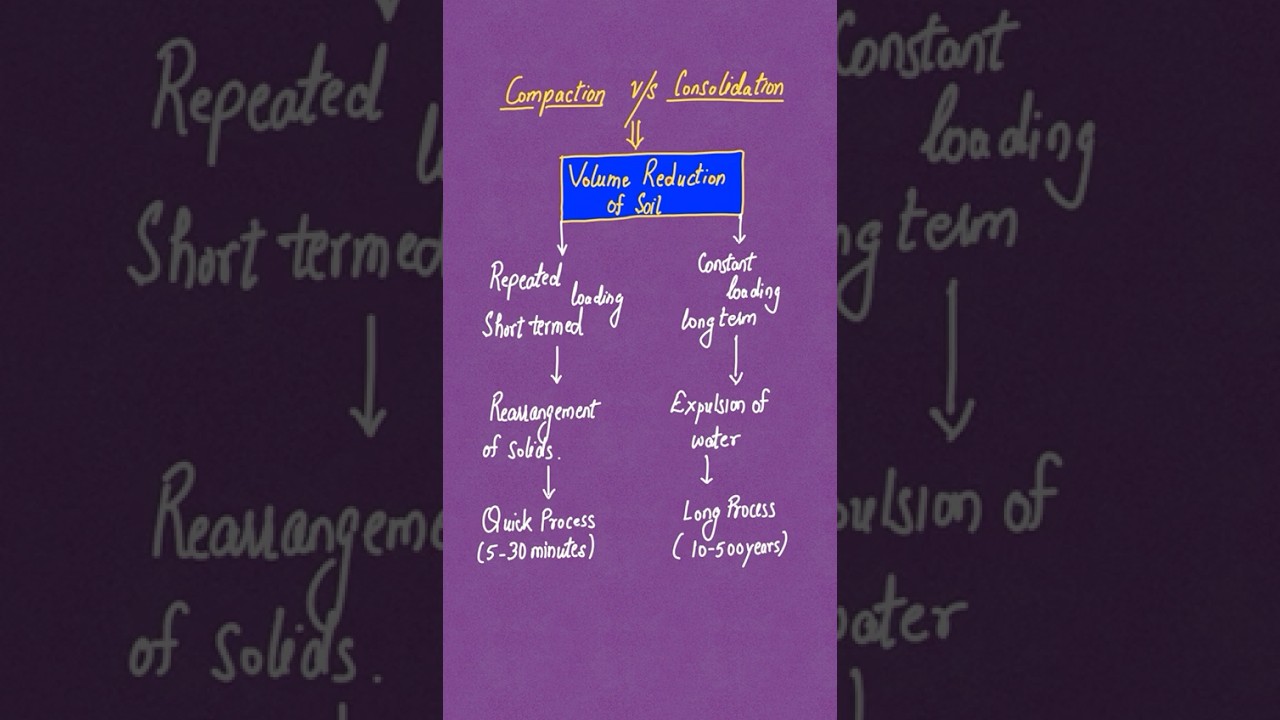 Compaction v/s Consolidation
Volume Reduction
of Soil
Repeated
loading
Short termed
Rearrangement
of solids.
Quick Process
(5-30 minutes)
Constant
loading
long term
Expulsion of
water
Long Process
(10-500years)